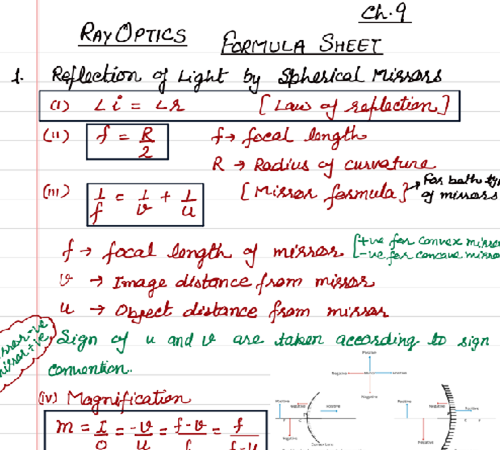 Ch.9
RAY OPTICS FORMULA SHEET
1. Reflection of Light by Spherical Mirrors
(i) ∠i = ∠r [Law of reflection]
(ii) f = R/2 f → focal length
R → Radius of curvature
(iii) 1/f = 1/v + 1/u [Mirror formula] → For both
of mirrors
f → focal length of mirror [+ve for convex
-ve for concave
v → Image distance from mirror
u → Object distance from mirror
-ve
+ve
Sign of u and v are taken according to sign
convention.
(iv) Magnification
m = I/O = -v/u = f-v/f = f/f-u
Positive
Negative
Negative
Positive
Negative
Positive